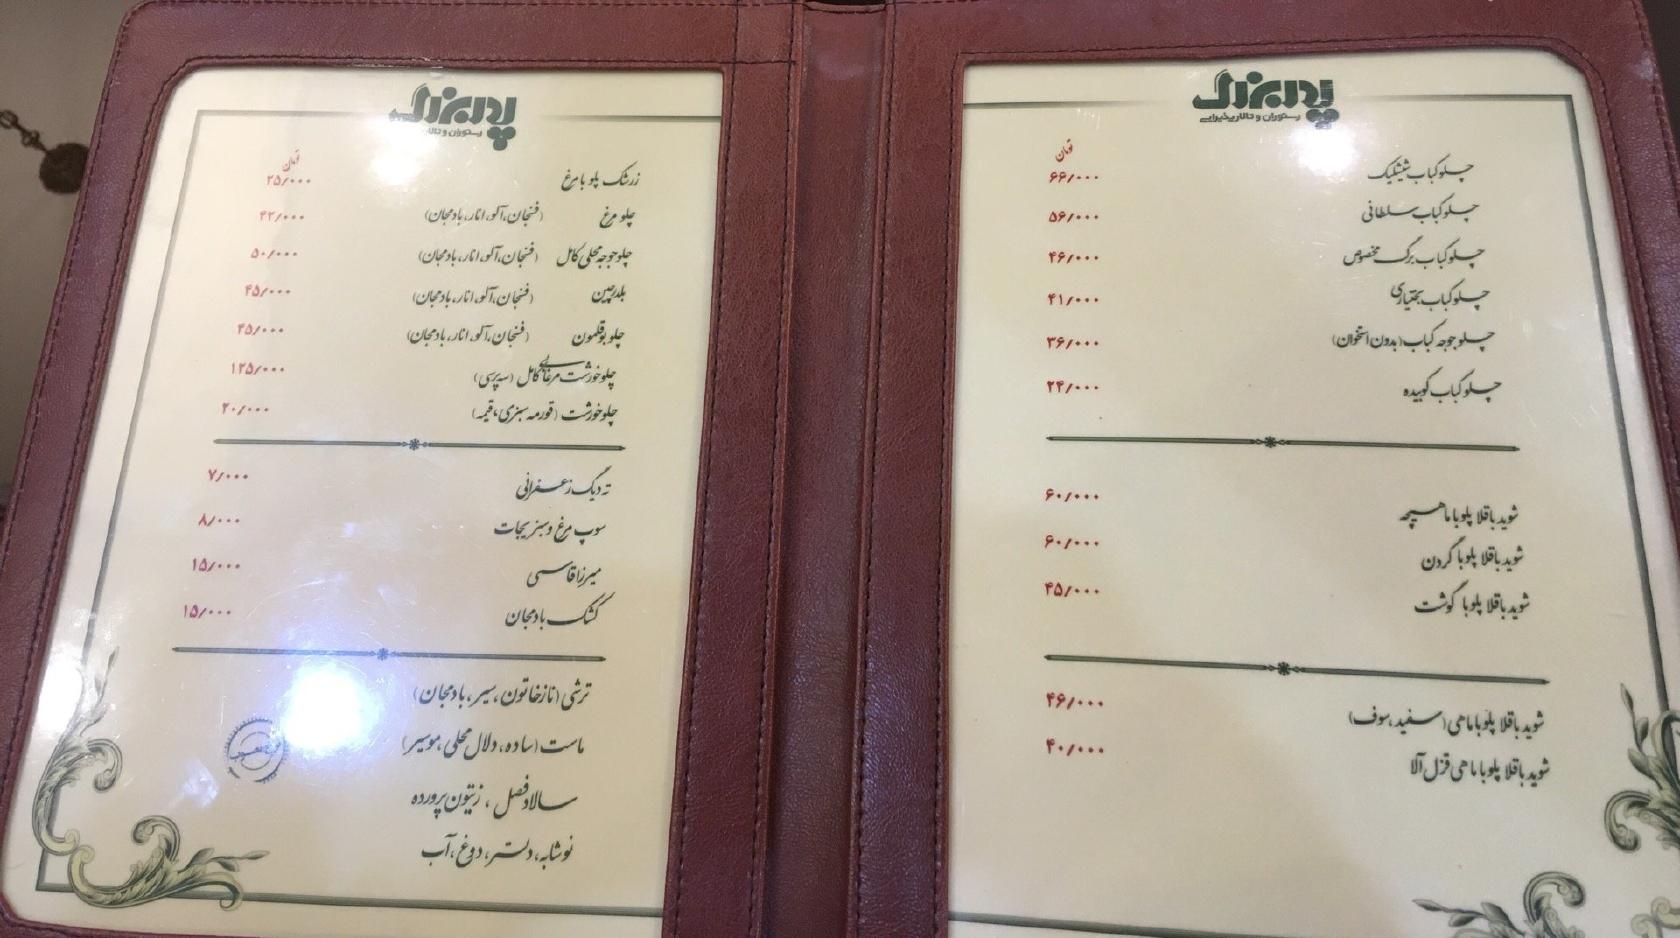 پدربزرگ
رستوران و تالار پذیرایی
تومان
چلو کباب شیشلیک ۶۶/۰۰۰
چلو کباب سلطانی ۵۶/۰۰۰
چلو کباب برگ مخصوص ۴۶/۰۰۰
چلو کباب بختیاری ۴۱/۰۰۰
چلو جوجه کباب (بدون استخوان) ۳۶/۰۰۰
چلو کباب کوبیده ۲۴/۰۰۰
شوید باقلا پلو با ماهیچه ۶۰/۰۰۰
شوید باقلا پلو با گردن ۶۰/۰۰۰
شوید باقلا پلو با گوشت ۴۵/۰۰۰
شوید باقلا پلو با ماهی (سفید، سوف) ۴۶/۰۰۰
شوید باقلا پلو با ماهی قزل آلا ۴۰/۰۰۰
پدربزرگ
رستوران و تالار
تومان
زرشک پلو با مرغ ۲۵/۰۰۰
چلو مرغ (فنجان، آلو، انار، بادمجان) ۴۲/۰۰۰
چلو جوجه محلی کامل (فنجان، آلو، انار، بادمجان) ۵۰/۰۰۰
بلدرچین (فنجان، آلو، انار، بادمجان) ۴۵/۰۰۰
چلو بوقلمون (فنجان، آلو، انار، بادمجان) ۴۵/۰۰۰
چلو خورشت مرغابی کامل (سه پرسی) ۱۲۵/۰۰۰
چلو خورشت (قورمه سبزی، قیمه) ۲۰/۰۰۰
ته دیگ زعفرانی ۷/۰۰۰
سوپ مرغ و سبزیجات ۸/۰۰۰
میرزا قاسمی ۱۵/۰۰۰
کشک بادمجان ۱۵/۰۰۰
ترشی (نازخاتون، سیر، بادمجان)
ماست (ساده، دلال محلی، موسیر)
سالاد فصل، زیتون پرورده
نوشابه، دلستر، دوغ، آب